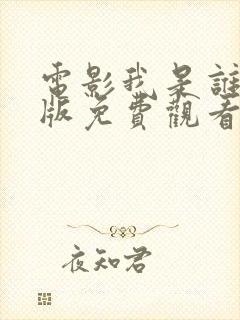 電影我是誰
版免費觀看
夜知君